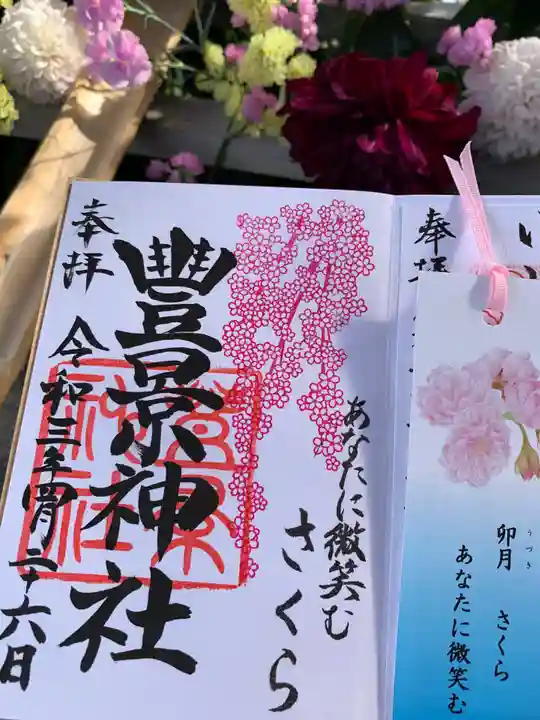 奉拝
豐景神社
令和三年四月二十六日
あなたに微笑む
さくら
奉拝
卯月 さくら
うづき
あなたに微笑む